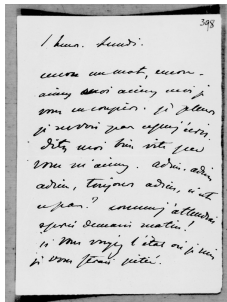 398
1 heure. Lundi.
encore un mot, encore -
aimez moi aimez moi je
vous en conjure. je pleure
je ne vois pas ce que j'écris.
dites moi bien vite que
vous m'aimez. adieu. adieu
adieu, toujours adieu, n'est
ce pas? comme j'attendrai
après demain matin!
si vous voyiez l'état où je suis
je vous ferais pitié.